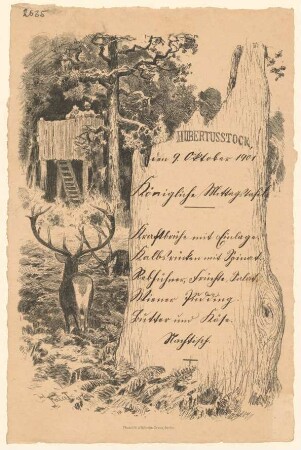 2635
HUBERTUSSTOCK,
den 9. Oktober 1901
Königliche Mittagstafel
Kraftbrühe mit Einlage,
Kalbsrücken mit Spinat,
Rebhühner, Früchte, Salat,
Wiener Pudding
Butter und Käse.
Nachtisch